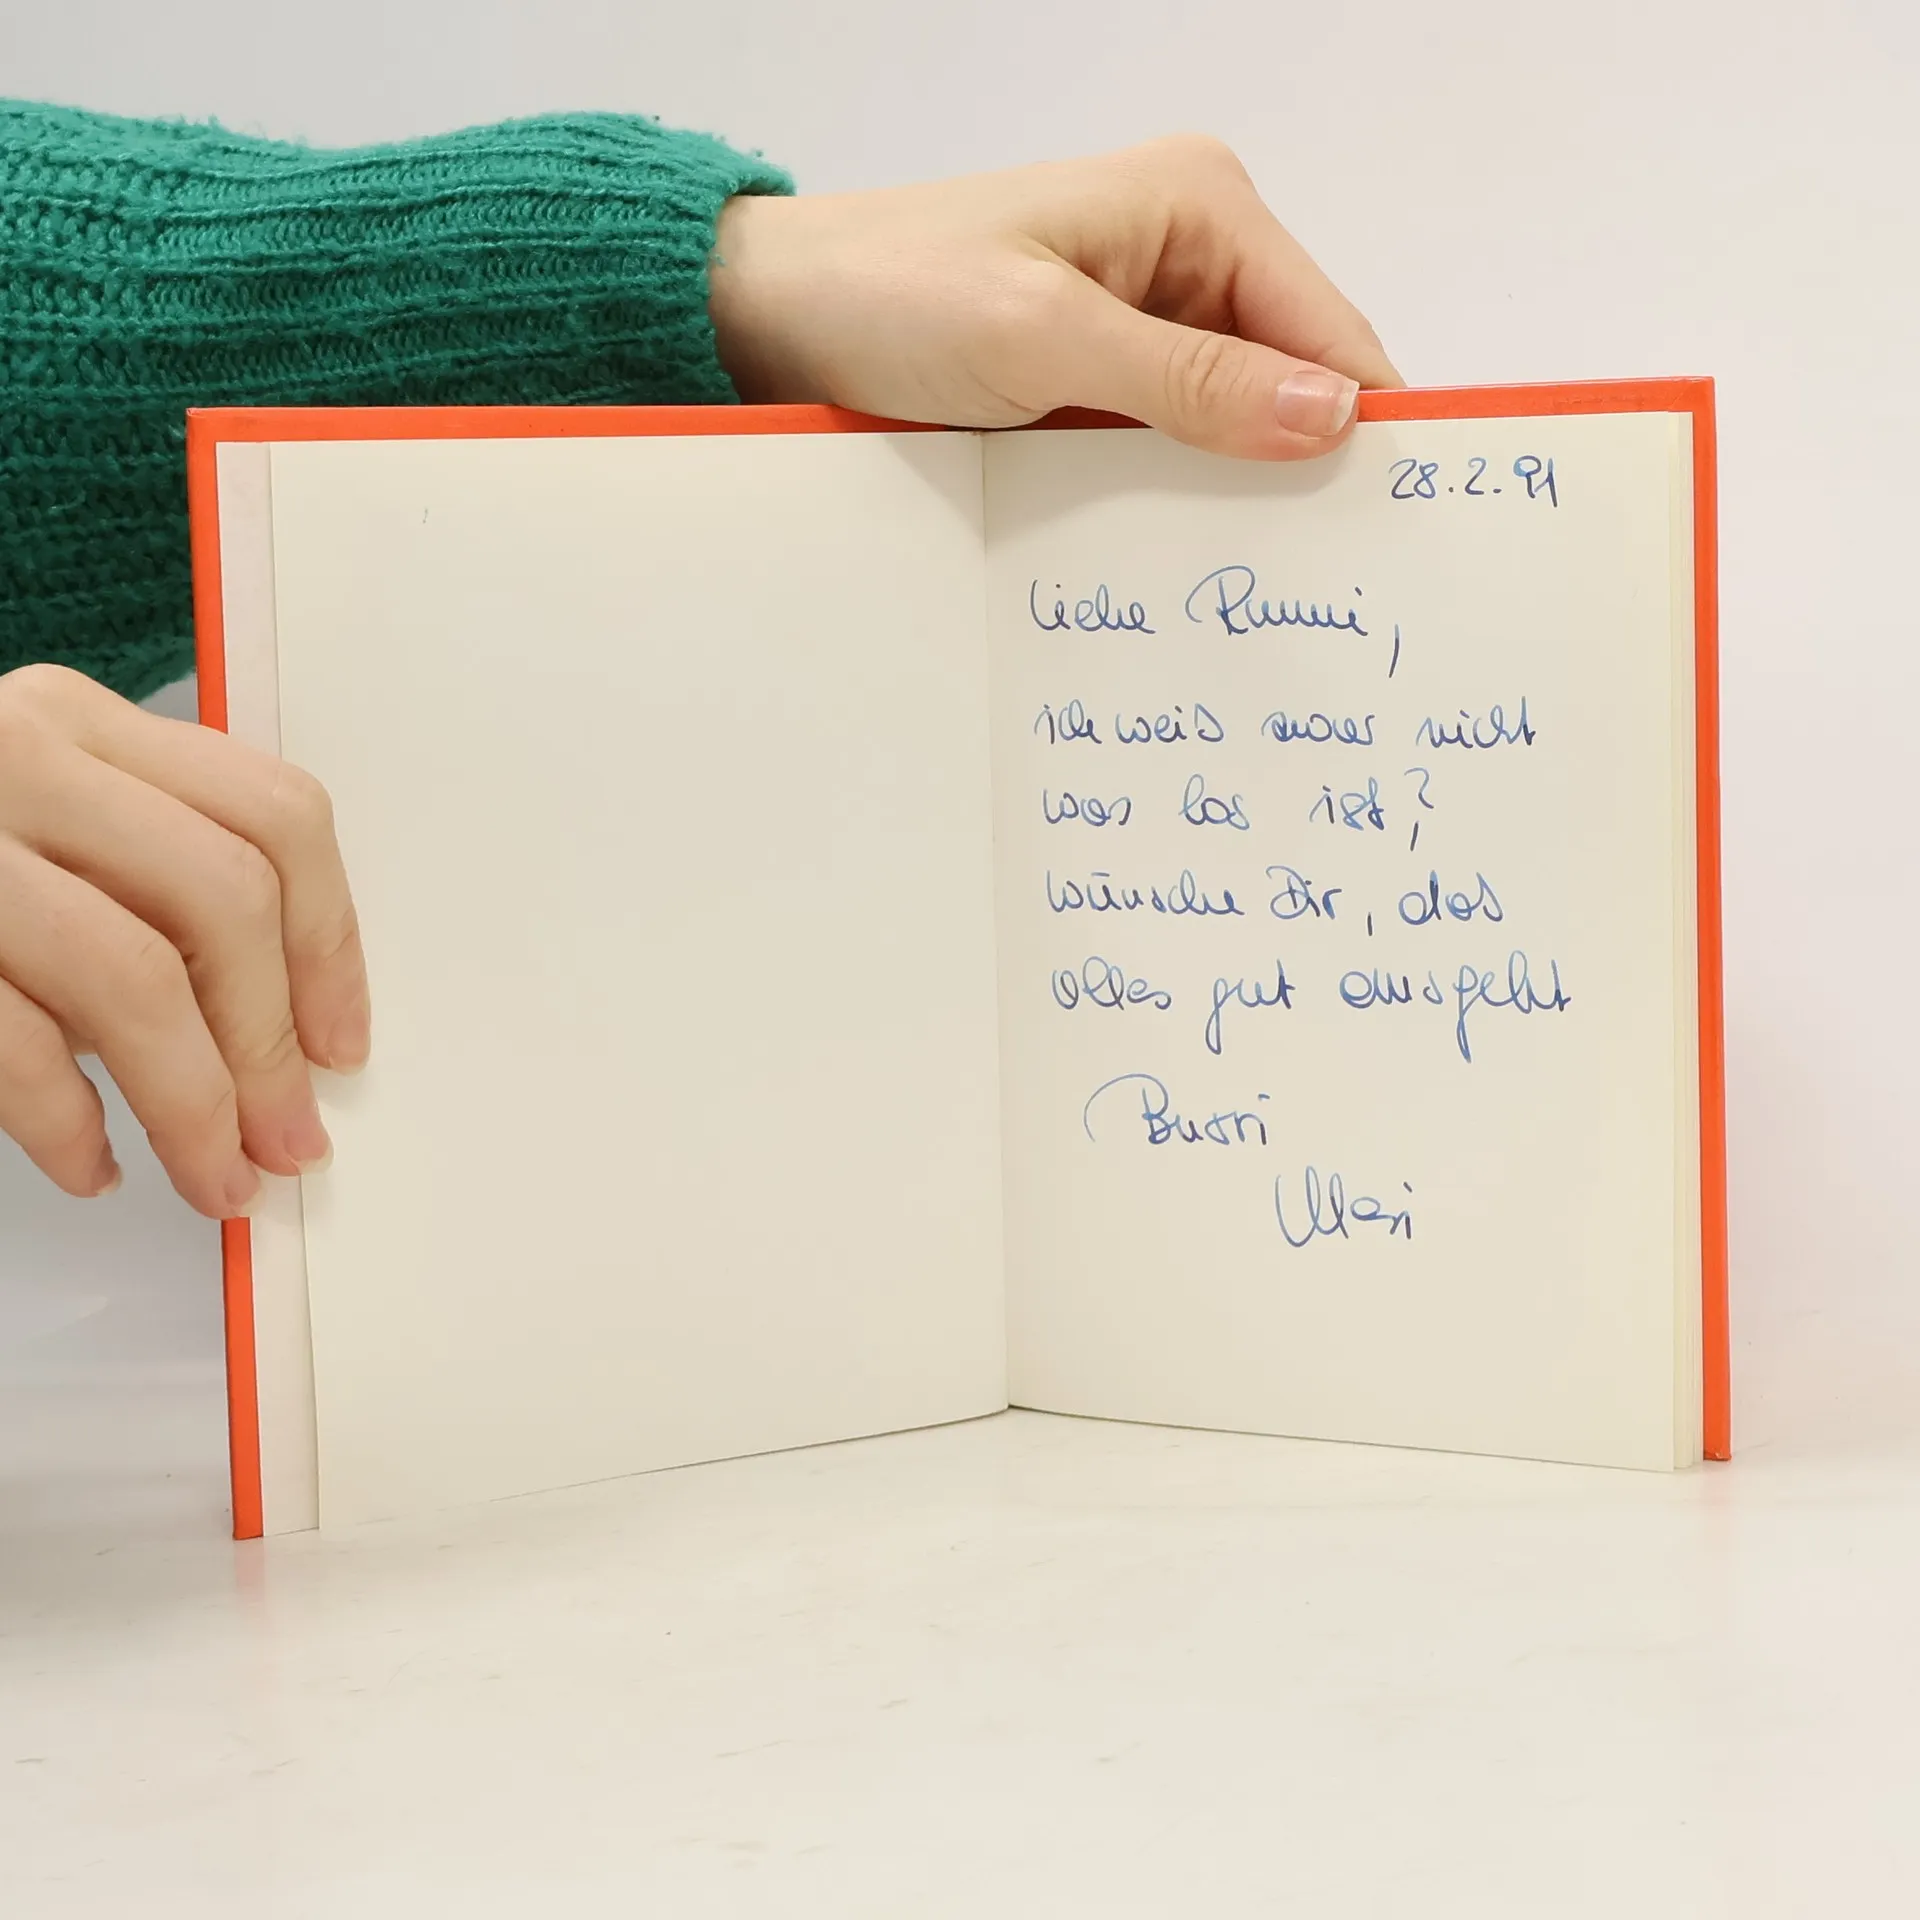 28.2.91
Liebe Rummi,
ich weiß zwar nicht
was los ist?,
wünsche Dir, daß
alles gut ausgeht
Bussi